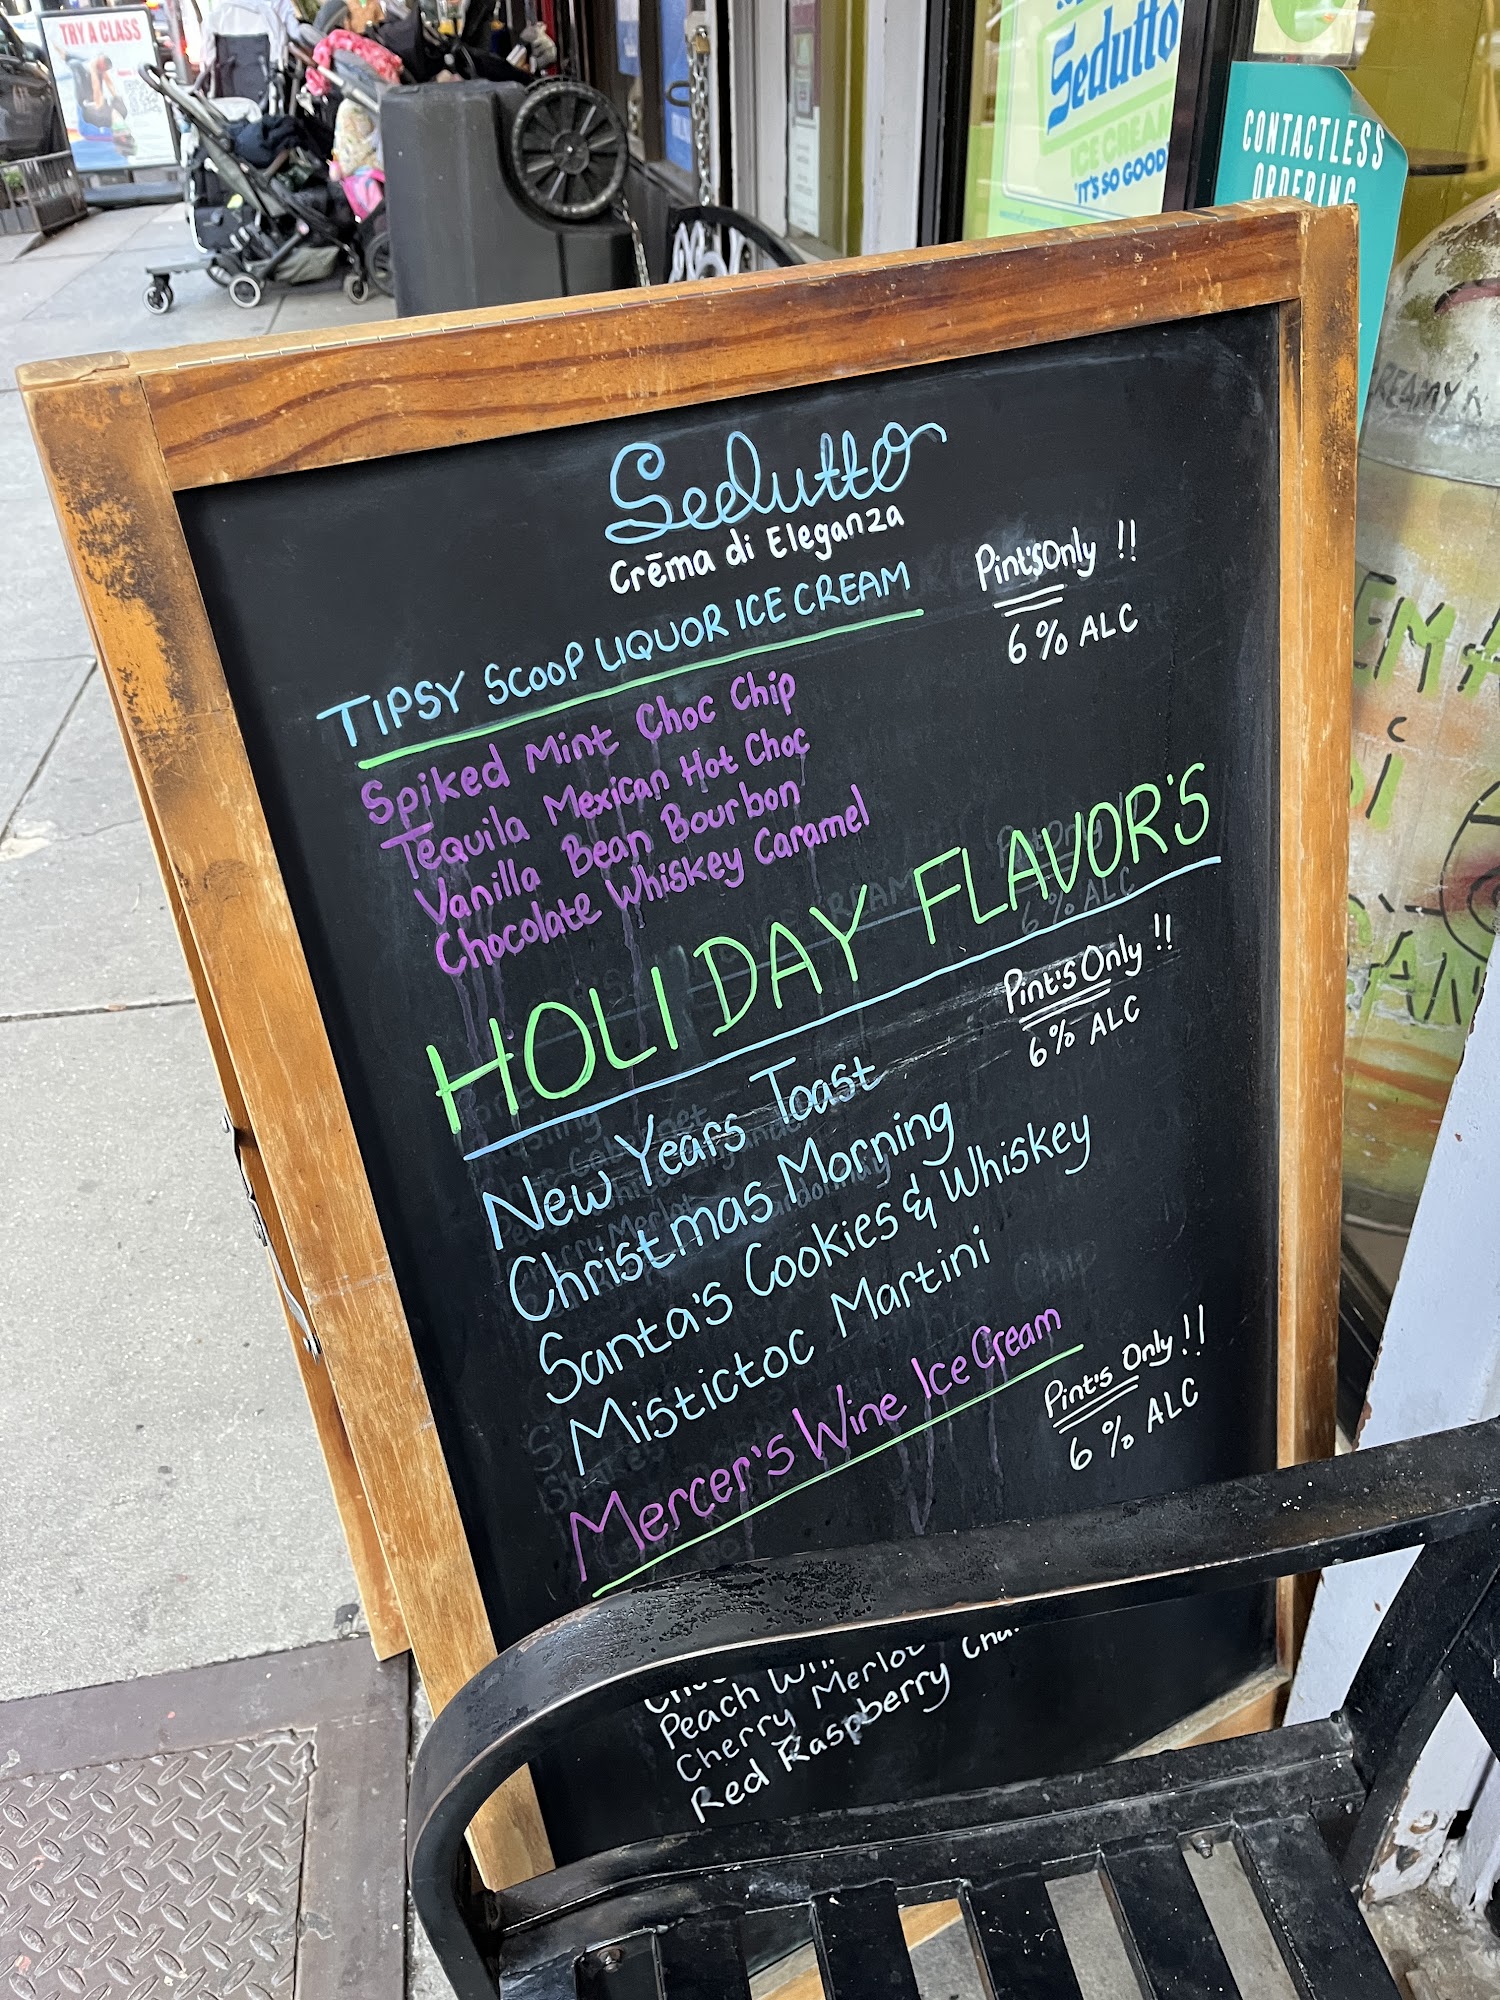 TRY A CLASS
Sedutto
ICE CREAM
"IT'S SO GOOD
CONTACTLESS
ORDERING
Sedutto
Crēma di Eleganza
TIPSY SCOOP LIQUOR ICE CREAM
Pint's Only !!
6% ALC
Spiked Mint Choc Chip
Tequila Mexican Hot Choc
Vanilla Bean Bourbon
Chocolate Whiskey Caramel
HOLIDAY FLAVOR'S
Pint's Only !!
6% ALC
New Years Toast
Christmas Morning
Santa's Cookies & Whiskey
Mistictoc Martini
Mercer's Wine Ice Cream
Pint's Only !!
6% ALC
Peach
Cherry Merlot
Red Raspberry